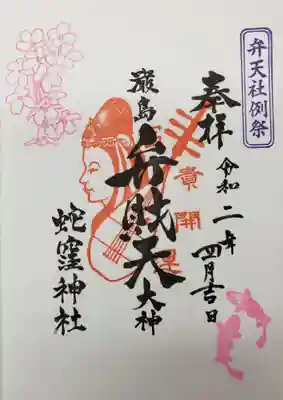 弁天社例祭
奉拝
令和二年
四月吉日
厳島
弁財天
大神
蛇窪神社